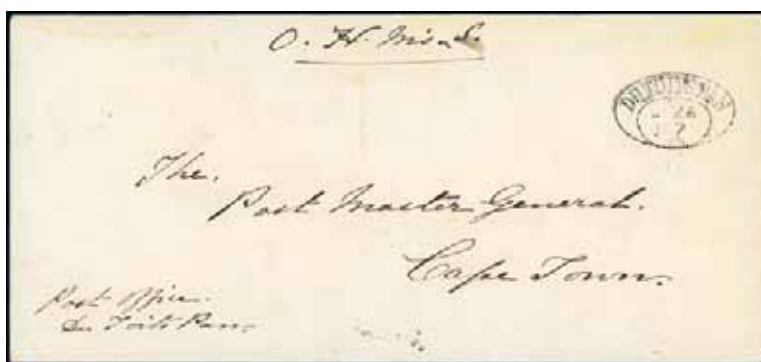 O. H. M.
DUTOITSPAN
The.
Post Master General.
Cape Town.
Post Office.
Du Toits Pan.